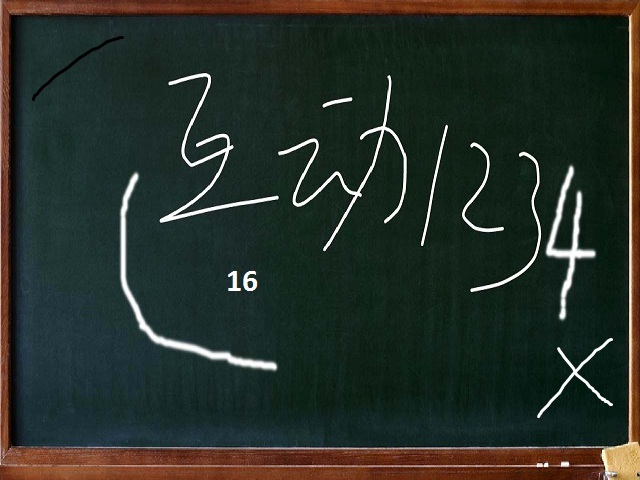 互动1234
16
X